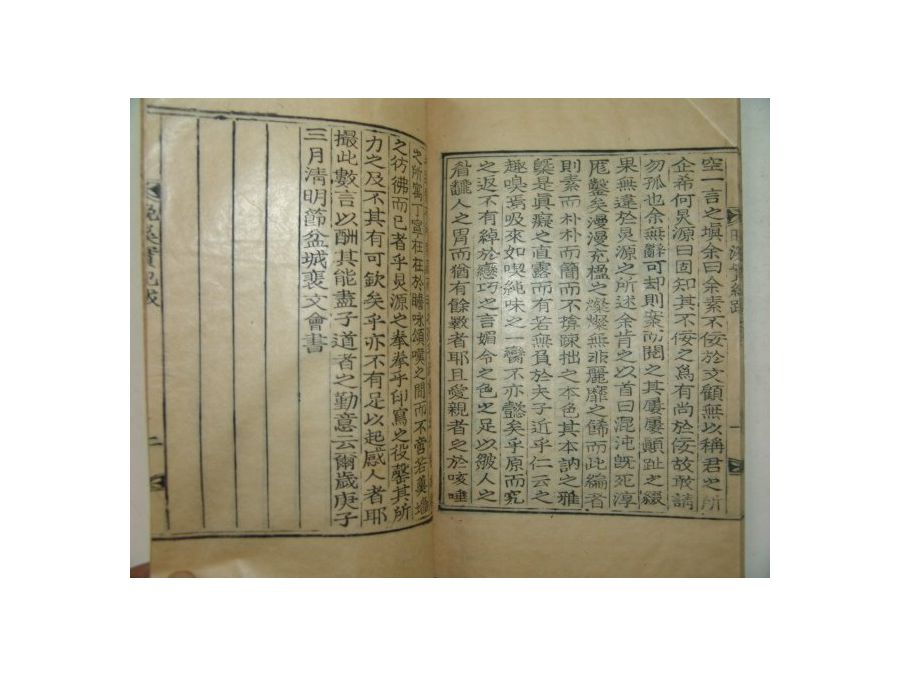 空一言之塡余曰余素不佞於文顧無以稱君之所
企希何炅源曰固知其不佞之爲有尚於佞故敢請
勿孤也余無辭可却則案而閱之其屢屢顚趾之綴
果無違於炅源之所述余肯之以首曰混沌旣死淳
厖鑿矣漫漫充楹之燦燦無非麗靡之餙而此編者
則素而朴朴而簡而不揜陳拙之本色其本訥之雅
槩是眞癡之直露而有若無負於夫子近乎仁云之
趣嗅焉吸來如喫純味之一臠不亦懿矣乎原而究
之返不有綽於戀巧之言媚令之色之足以皺人之
看讎人之胃而猶有餘斁者耶且愛親者之於咳唾
之所寓丁寧在在於瞻咏頌嘆之間而不啻若羹墻
之彷彿而已者乎炅源之拳拳乎印寫之役罄其所
力之及不其有可欽矣乎亦不有足以起感人者耶
撮此數言以酬其能盡子道者之勤意云爾歲庚子
三月淸明節盆城裵文會書
二
一